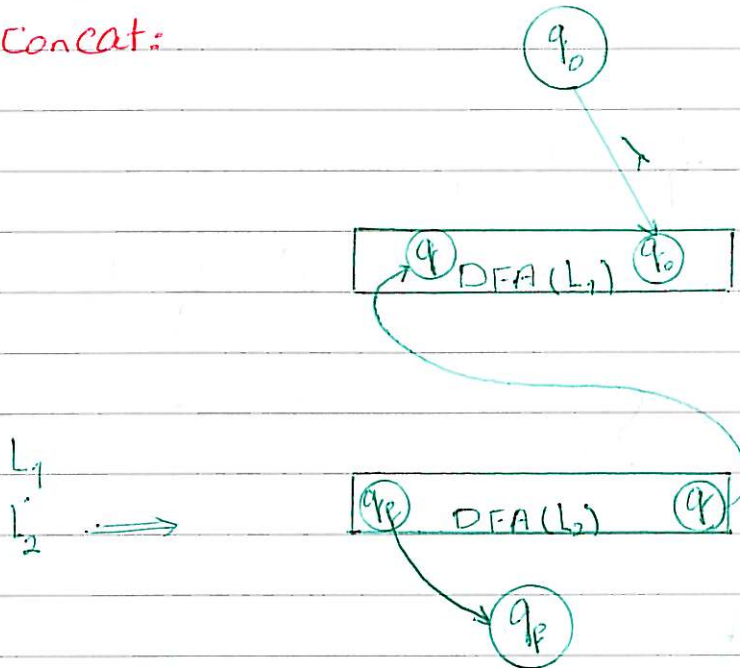 Concat:
q₀
λ
q DFA(L₁) q₀
L₁
L₂ ⟹
q_F DFA(L₂) q
q_F